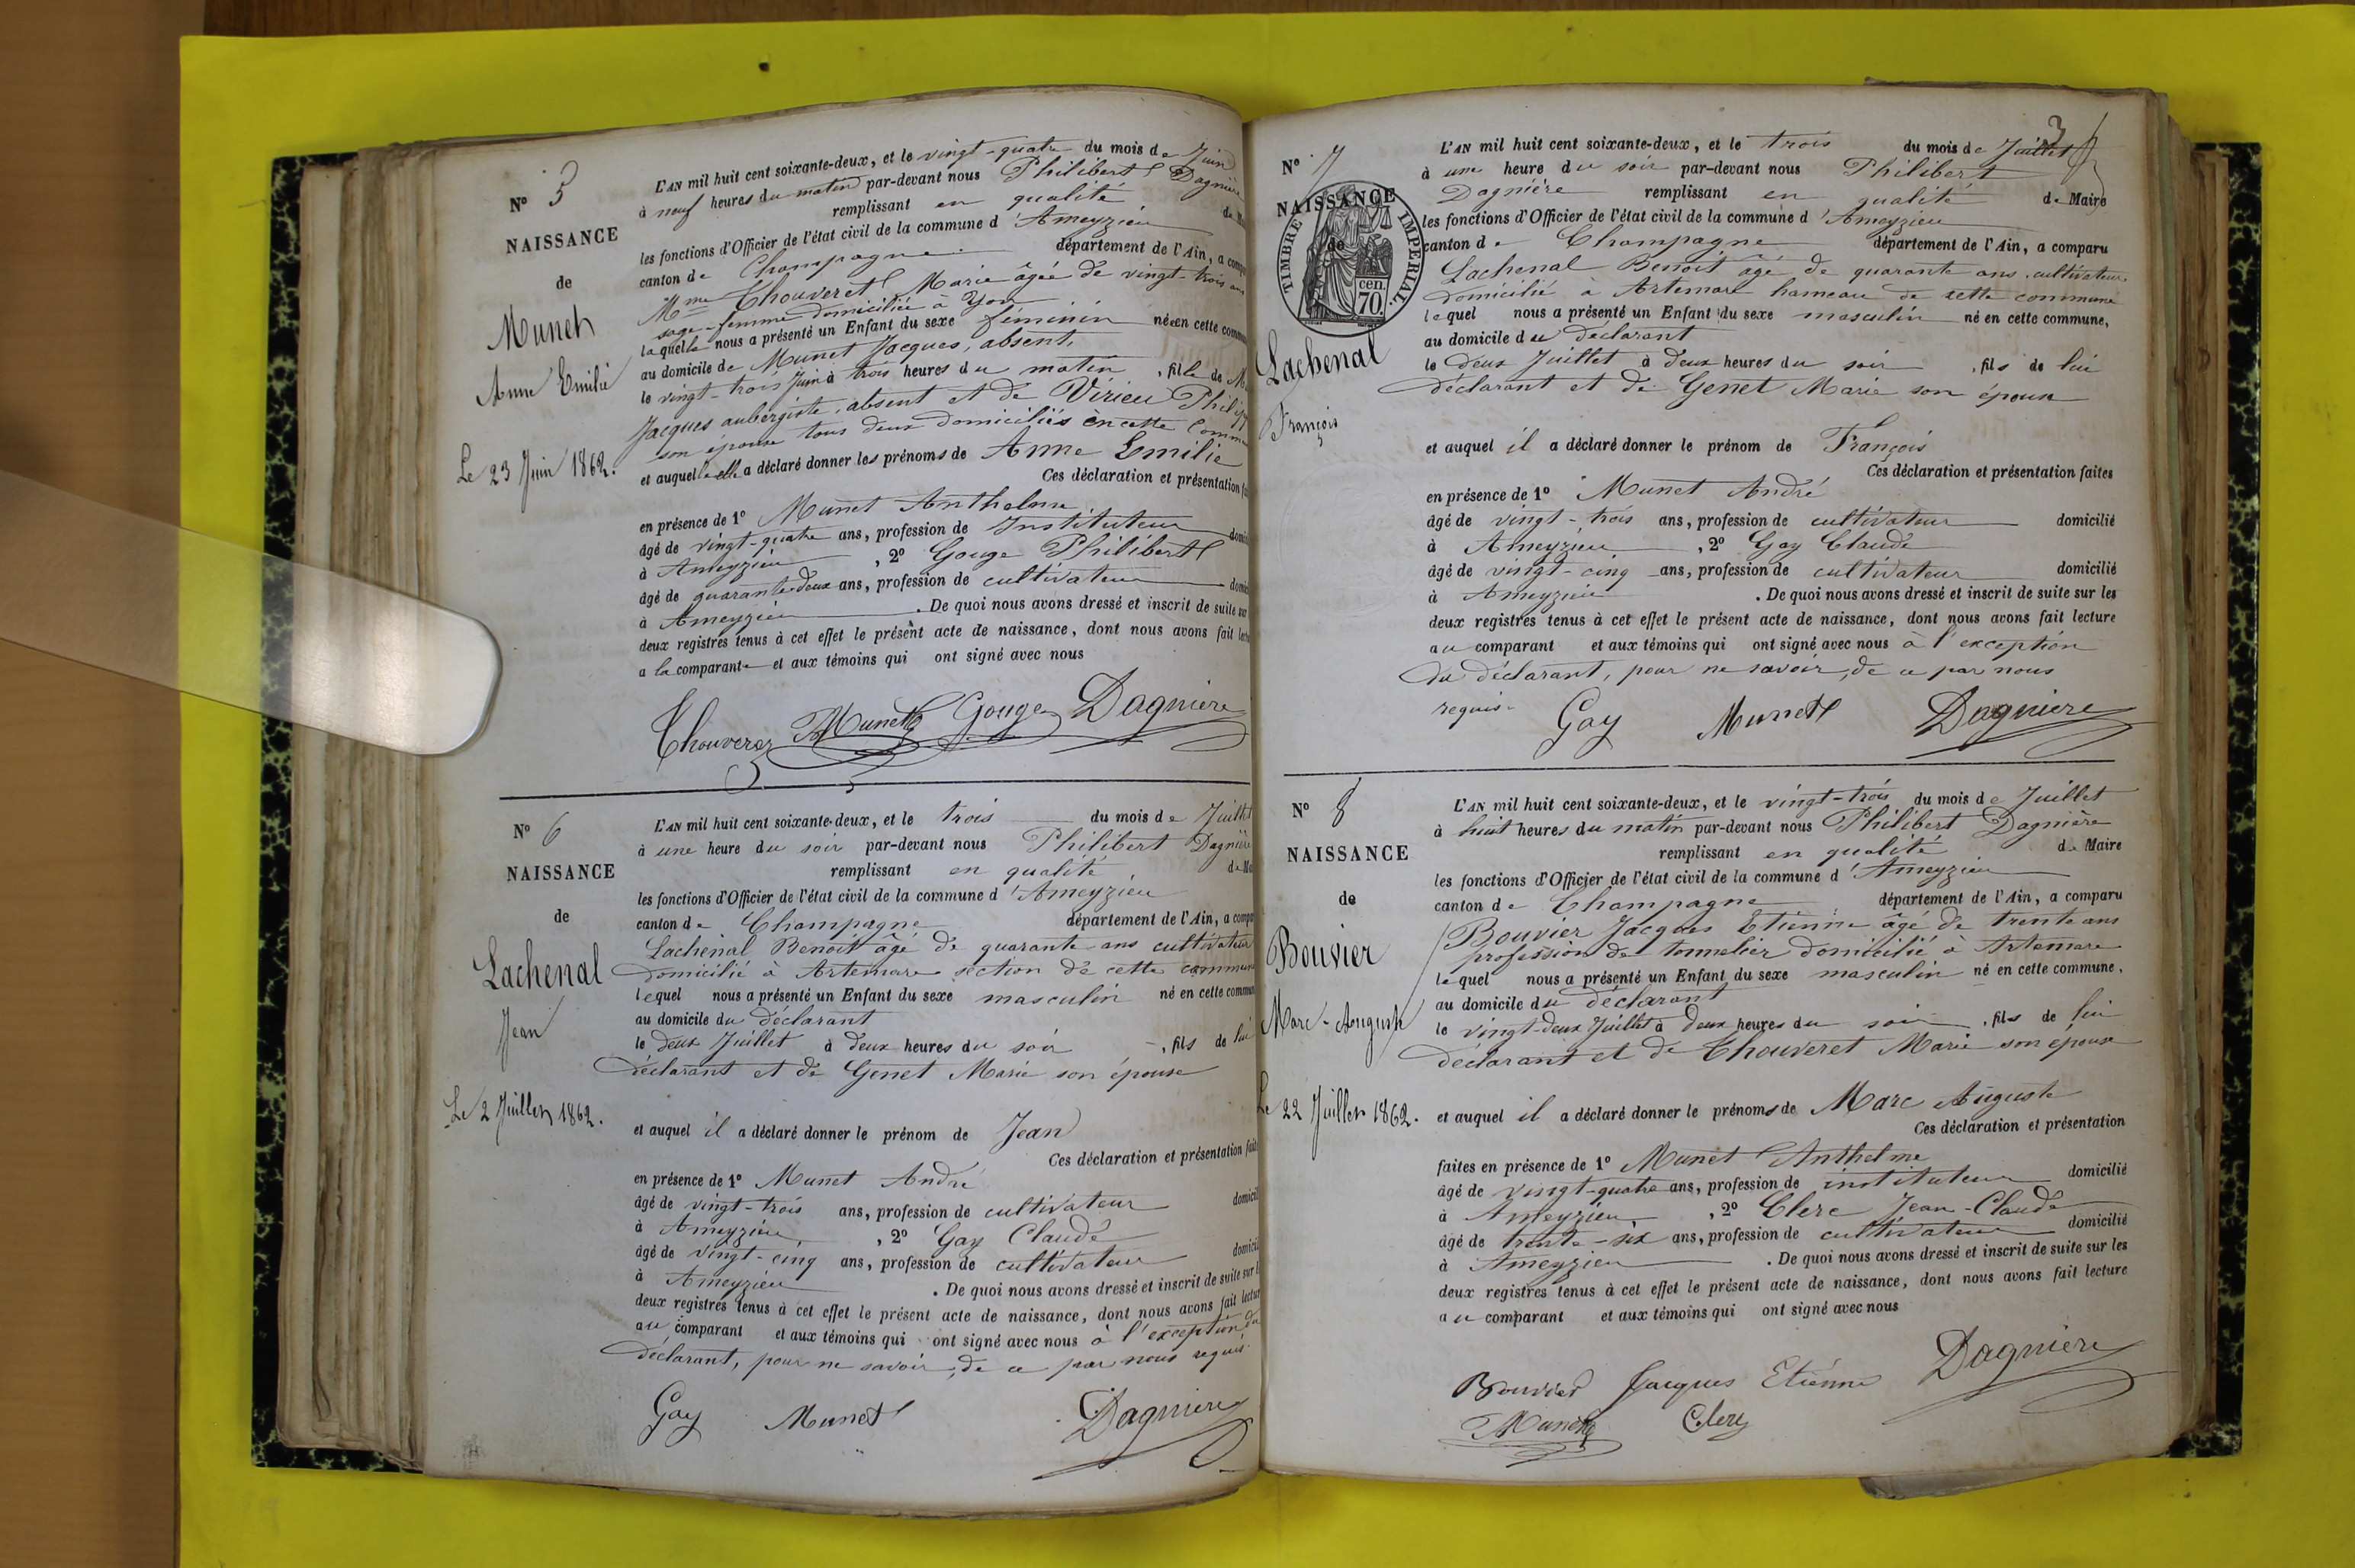 N° 5
NAISSANCE
de
Munet
Anne Emilie
Le 23 Juin 1862.
L'AN mil huit cent soixante-deux, et le vingt-quatre du mois de Juin
à neuf heures du matin par-devant nous Philibert Dagnière
remplissant en qualité de
les fonctions d'Officier de l'état civil de la commune d'Ameyzieu
canton de Champagne département de l'Ain, a
Mme Chouveret Marie âgée de vingt-trois ans
sage-femme domiciliée à Yon
laquelle nous a présenté un Enfant du sexe féminin née en cette
au domicile de Munet Jacques, absent,
le vingt-trois Juin à trois heures du matin, fille de M
Jacques aubergiste, absent et de Virieu
son épouse tous deux domiciliés en cette
et auquel elle a déclaré donner les prénoms de Anne Emilie
Ces déclaration et présentation
en présence de 1° Munet Anthelme
âgé de vingt-quatre ans, profession de Instituteur
à Ameyzieu, 2° Gouge Philibert
âgé de quarante-deux ans, profession de cultivateur
à Ameyzieu. De quoi nous avons dressé et inscrit de suite sur
deux registres tenus à cet effet le présent acte de naissance, dont nous avons fait
a la comparante et aux témoins qui ont signé avec nous
Chouveret Munet Gouge Dagnière
N° 6
NAISSANCE
de
Lachenal
Jean
Le 2 Juillet 1862.
L'AN mil huit cent soixante-deux, et le trois du mois de Juillet
à une heure du soir par-devant nous Philibert Dagnière
remplissant en qualité de
les fonctions d'Officier de l'état civil de la commune d'Ameyzieu
canton de Champagne département de l'Ain, a
Lachenal Benoit âgé de quarante ans cultivateur
domicilié à Artemare section de cette commune
lequel nous a présenté un Enfant du sexe masculin né en cette
au domicile du déclarant
le deux Juillet à deux heures du soir, fils de lui
déclarant et de Genet Marie son épouse
et auquel il a déclaré donner le prénom de Jean
Ces déclaration et présentation
en présence de 1° Munet André
âgé de vingt-trois ans, profession de cultivateur
à Ameyzieu, 2° Gay Claude
âgé de vingt-cinq ans, profession de cultivateur
à Ameyzieu. De quoi nous avons dressé et inscrit de suite sur
deux registres tenus à cet effet le présent acte de naissance, dont nous avons fait
au comparant et aux témoins qui ont signé avec nous à l'exception du
déclarant, pour ne savoir, de ce par nous requis.
Gay Munet Dagnière
3
N° 7
NAISSANCE
de
TIMBRE IMPERIAL.
70 cen.
Lachenal
François
L'AN mil huit cent soixante-deux, et le trois du mois de Juillet
à une heure du soir par-devant nous Philibert
Dagnière remplissant en qualité de Maire
les fonctions d'Officier de l'état civil de la commune d'Ameyzieu
canton de Champagne département de l'Ain, a comparu
Lachenal Benoit âgé de quarante ans cultivateur
domicilié à Artemare hameau de cette commune
lequel nous a présenté un Enfant du sexe masculin né en cette commune,
au domicile du déclarant
le deux Juillet à deux heures du soir, fils de lui
déclarant et de Genet Marie son épouse
et auquel il a déclaré donner le prénom de François
Ces déclaration et présentation faites
en présence de 1° Munet André
âgé de vingt-trois ans, profession de cultivateur domicilié
à Ameyzieu, 2° Gay Claude
âgé de vingt-cinq ans, profession de cultivateur domicilié
à Ameyzieu. De quoi nous avons dressé et inscrit de suite sur les
deux registres tenus à cet effet le présent acte de naissance, dont nous avons fait lecture
au comparant et aux témoins qui ont signé avec nous à l'exception
du déclarant, pour ne savoir, de ce par nous
requis.
Gay Munet Dagnière
N° 8
NAISSANCE
de
Bouvier
Marc-Auguste
Le 22 Juillet 1862.
L'AN mil huit cent soixante-deux, et le vingt-trois du mois de Juillet
à huit heures du matin par-devant nous Philibert Dagnière
remplissant en qualité de Maire
les fonctions d'Officier de l'état civil de la commune d'Ameyzieu
canton de Champagne département de l'Ain, a comparu
Bouvier Jacques Etienne âgé de trente ans
profession de tonnelier domicilié à Artemare
lequel nous a présenté un Enfant du sexe masculin né en cette commune,
au domicile du déclarant
le vingt-deux Juillet à deux heures du soir, fils de lui
déclarant et de Chouveret Marie son épouse
et auquel il a déclaré donner le prénoms de Marc Auguste
Ces déclaration et présentation
faites en présence de 1° Munet Anthelme
âgé de vingt-quatre ans, profession de instituteur domicilié
à Ameyzieu, 2° Clerc Jean-Claude
âgé de trente-six ans, profession de cultivateur domicilié
à Ameyzieu. De quoi nous avons dressé et inscrit de suite sur les
deux registres tenus à cet effet le présent acte de naissance, dont nous avons fait lecture
au comparant et aux témoins qui ont signé avec nous
Dagnière
Bouvier Jacques Etienne
Munet Clerc